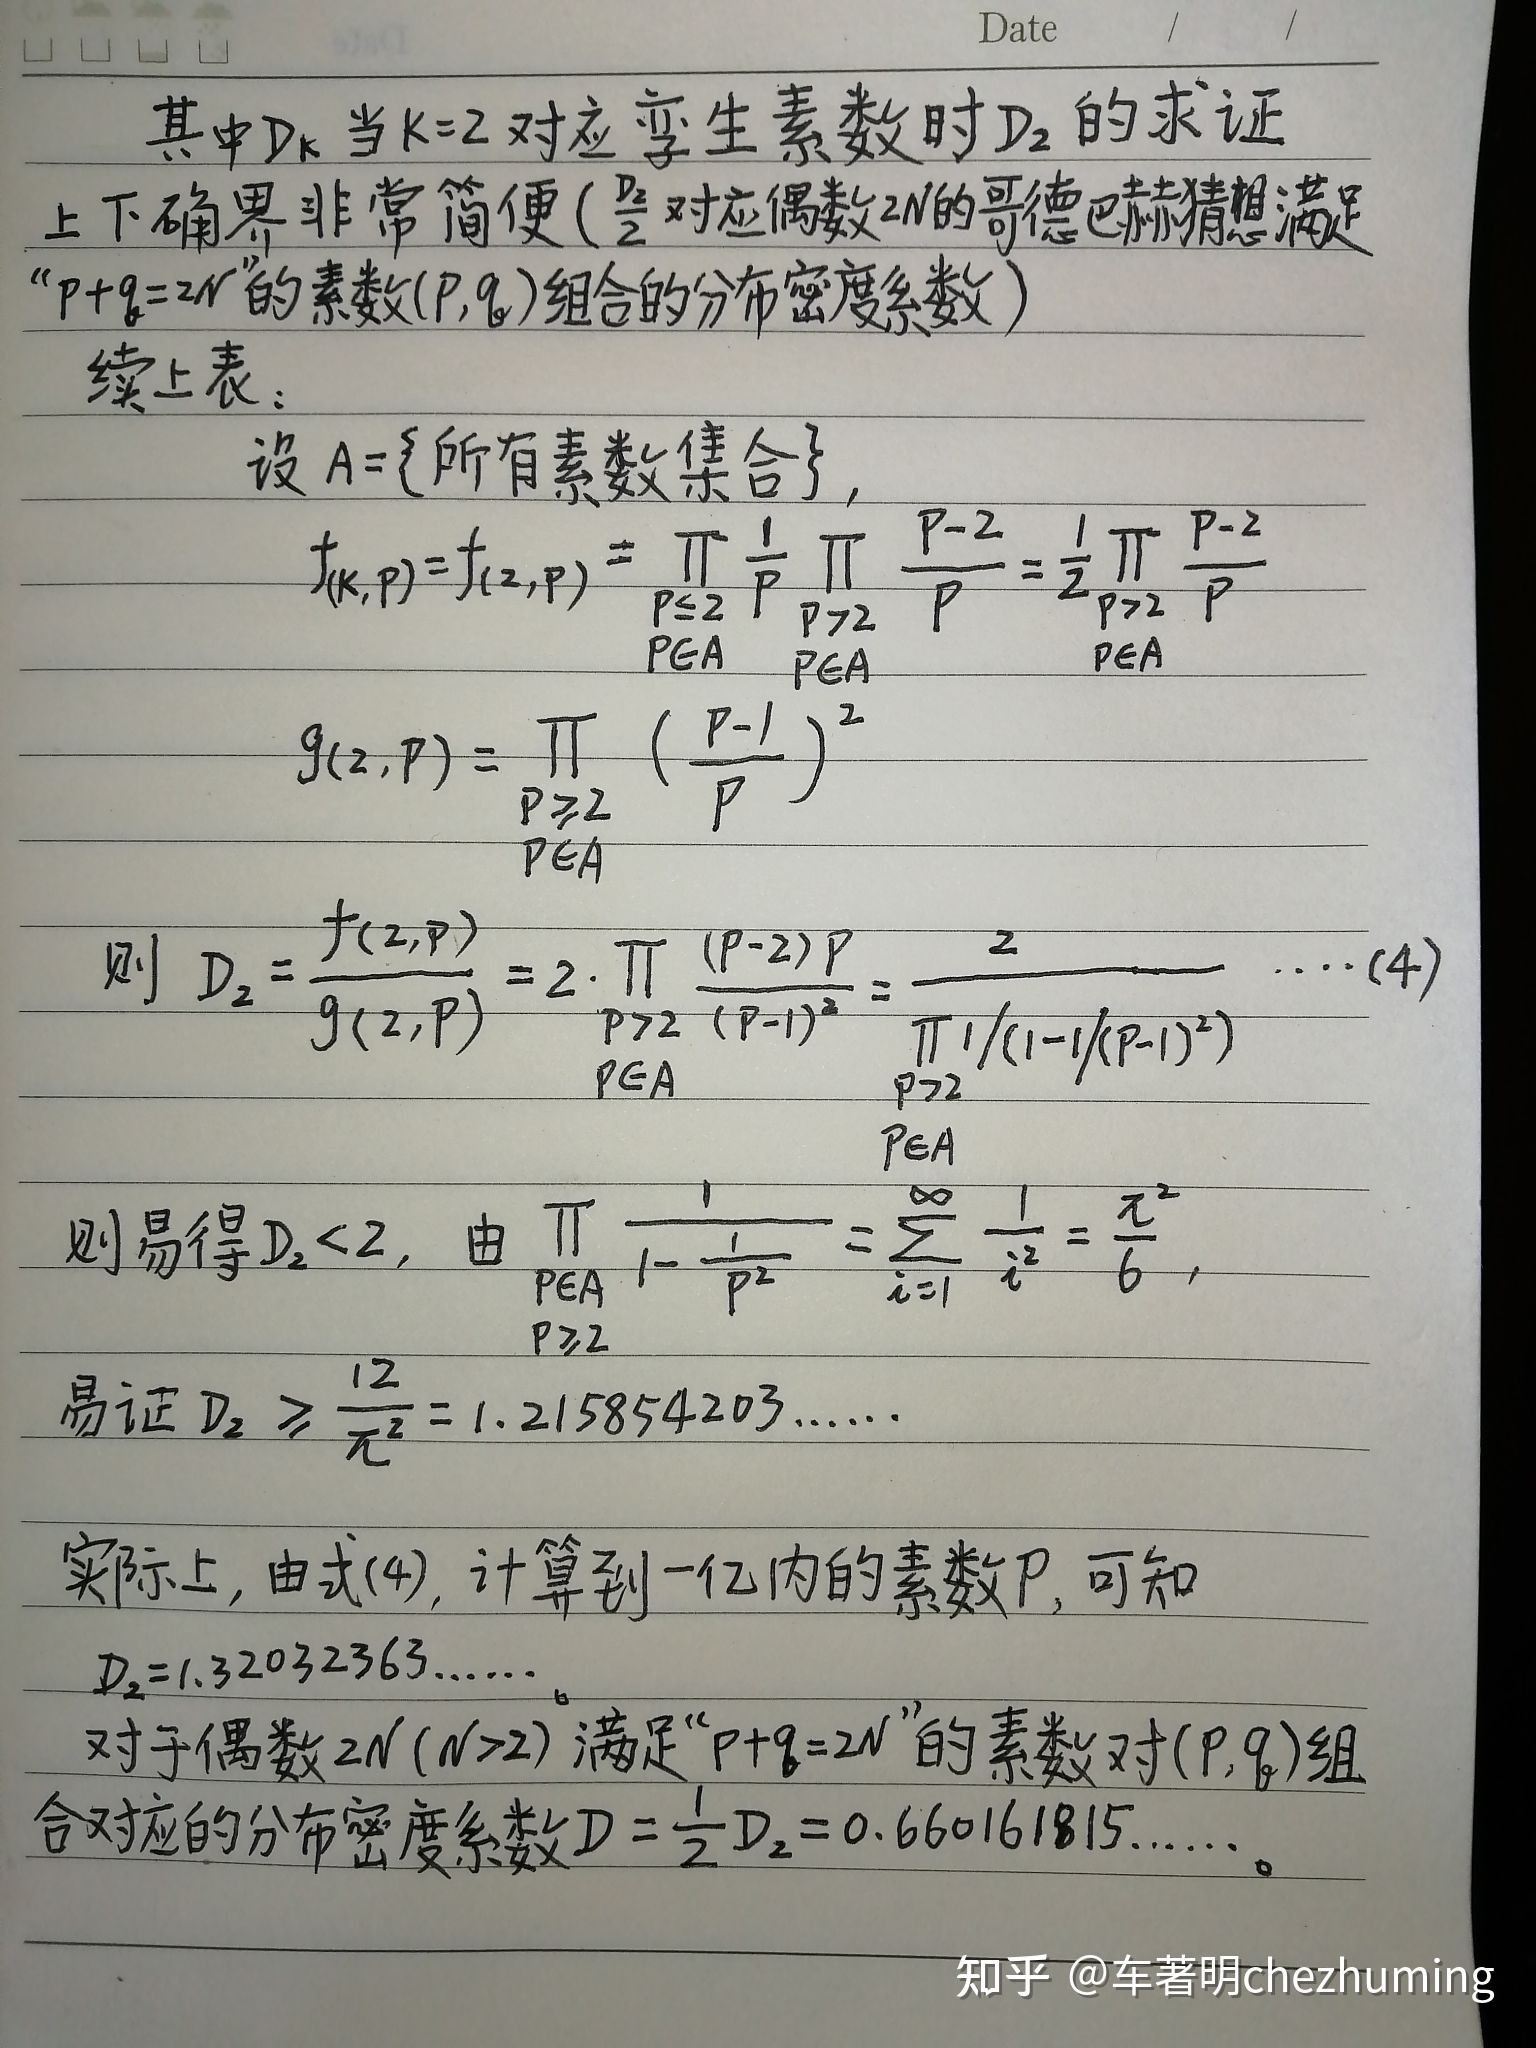 Date / /
其中Dₖ当K=2对应孪生素数时D₂的求证
上下确界非常简便(D₂/2对应偶数2N的哥德巴赫猜想满足
“p+q=2N”的素数(P,q)组合的分布密度系数)
续上表:
设A={所有素数集合},
f(K,P)=f(2,P)=∏_{P≤2, P∈A} 1/P ∏_{P>2, P∈A} (P-2)/P = 1/2 ∏_{P>2, P∈A} (P-2)/P
g(2,P)=∏_{P≥2, P∈A} ((P-1)/P)²
则 D₂=f(2,P)/g(2,P)=2·∏_{P>2, P∈A} (P-2)P/(P-1)²=2/(∏_{P>2, P∈A} 1/(1-1/(P-1)²)) ····(4)
则易得D₂<2, 由 ∏_{P∈A, P≥2} 1/(1-1/P²)=∑_{i=1}^{∞} 1/i²=π²/6,
易证D₂≥12/π²=1.215854203......
实际上,由式(4),计算到一亿内的素数P,可知
D₂=1.32032363......。
对于偶数2N(N>2)满足“p+q=2N”的素数对(P,q)组
合对应的分布密度系数D=1/2D₂=0.660161815......。
知乎 @车著明chezhuming